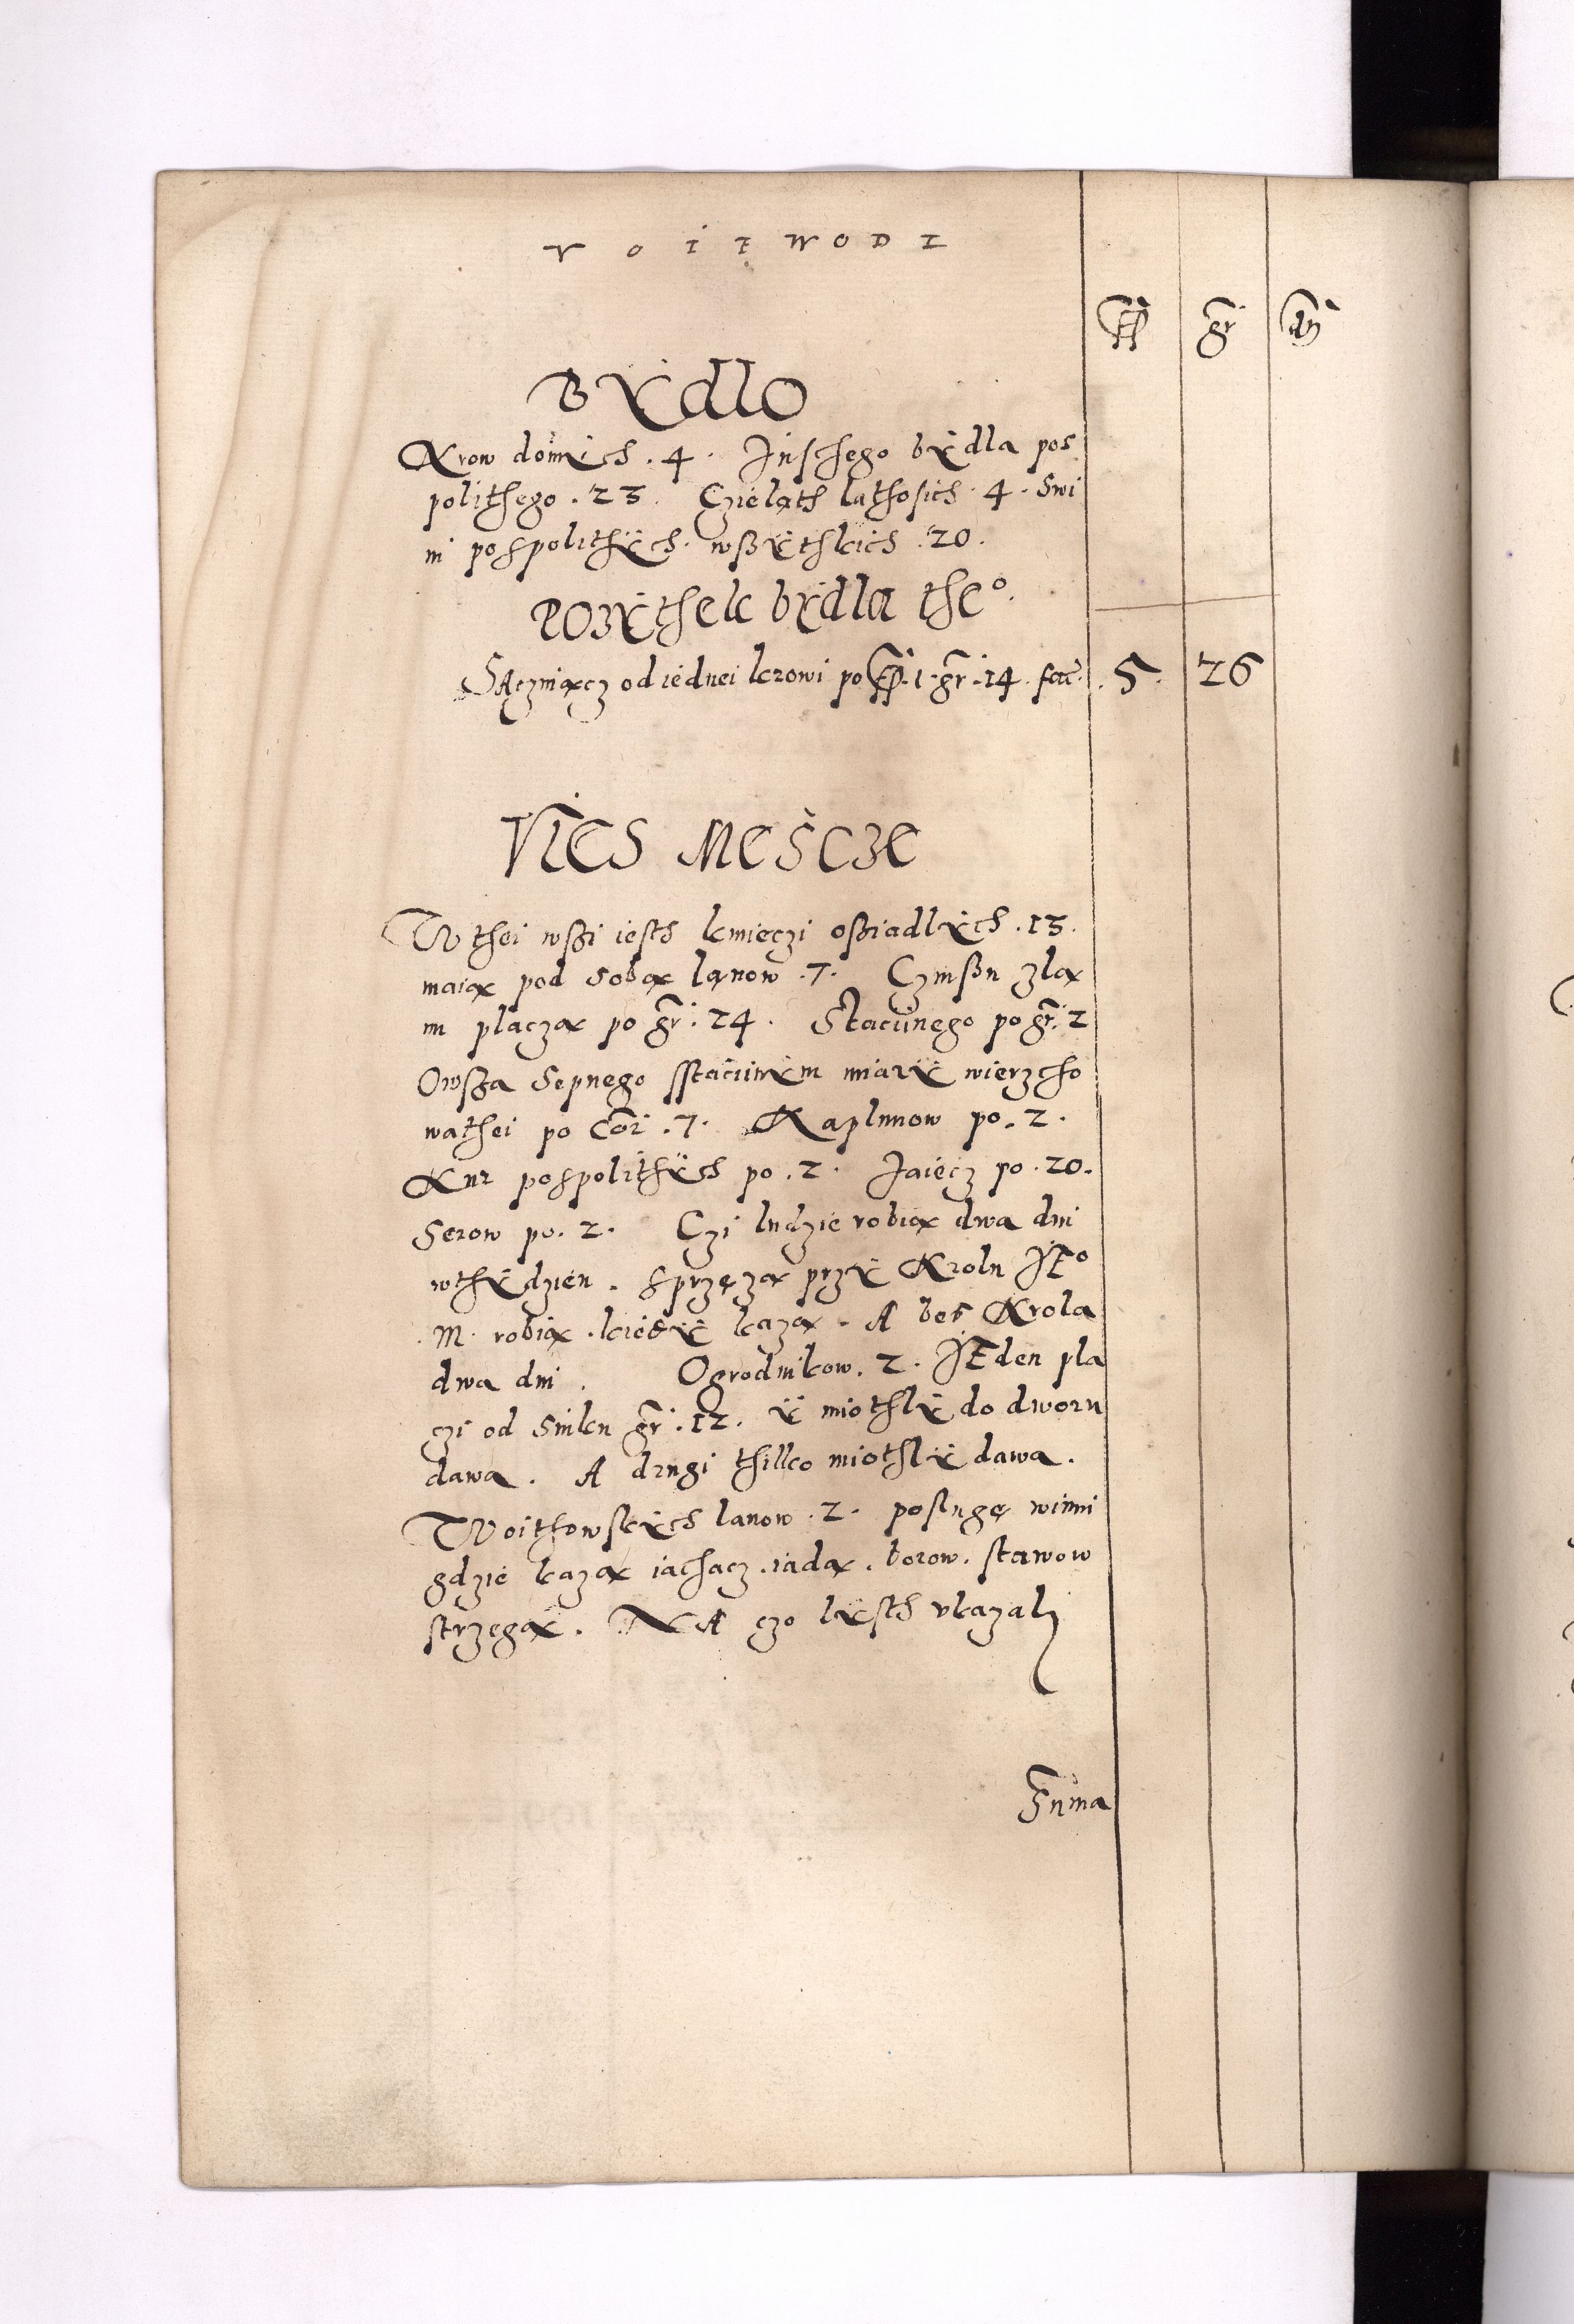 VOIEWODZ
fl gr dn
BYdlo
Krow doinÿch . 4 . Jnschego bÿdla pos
polithego . 23 . Czieląth lathosich . 4 . Swi
ni pospolithÿch wßÿthkich . 20 .
POZÿthek bÿdla the°.
SAczuiącz od iednei krowi po fl . 1 . gr . 14 . fac . 5 . 26
VIES MESCZE
W thei wßi iesth kmieczi oßiadlÿch . 13 .
maią pod sobą lanow . 7 . Czinßu zla
ni placzą po gr . 24 . Staciinego po gr . 2
Owßa Sepnego staciinÿm miarÿ wierzcho
wathei po Cor . 7 . Kaplunow po . 2 .
Kur pospolithÿch po . 2 . Jaiecz po . 20 .
Serow po . 2 . Czi ludzie robią dwa dni
wthÿdzien . Sprzężą przÿ Krolu JE°
M . robią . kiedÿ każą . A bes Krola
dwa dni . Ogrodnikow . 2 . JEden pla
czi od Sinku gr . 12 . ÿ miothlÿ do dworu
dawa . A drugi thilko miothlÿ dawa .
Woithowskÿch lanow . 2 . poslugę winni
gdzie każą iachacz . iadą . borow . stawow
strzegą . NA czo lÿsth vkazali
Suma